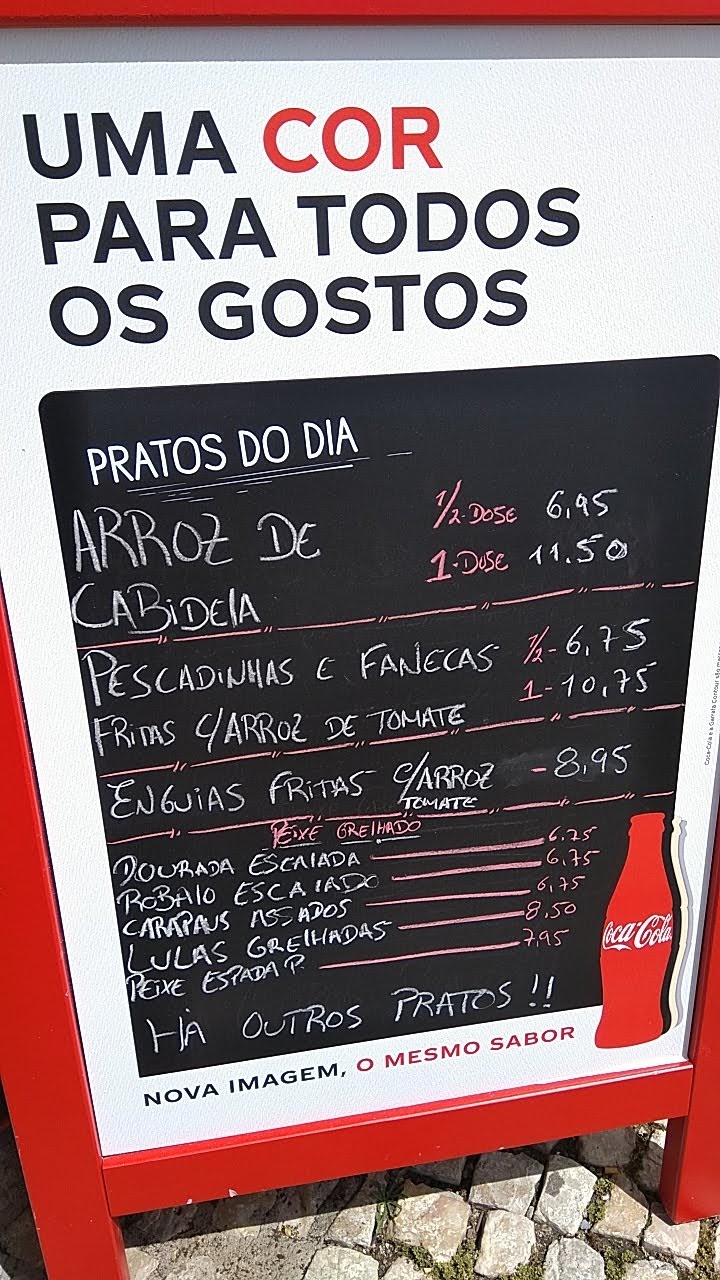 UMA COR
PARA TODOS
OS GOSTOS
PRATOS DO DIA
ARROZ DE 1/2-DOSE 6,95
1-DOSE 11.50
CABIDELA
PESCADINHAS E FANECAS 1/2-6,75
1-10,75
FRITAS C/ARROZ DE TOMATE
ENGUIAS FRITAS C/ARROZ -8,95
TOMATE
PEIXE GRELHADO
DOURADA ESCALADA 6.75
ROBALO ESCALADO 6,75
CARAPAUS ASSADOS 6,75
LULAS GRELHADAS 8,50
PEIXE ESPADA P. 7,95
HÁ OUTROS PRATOS!!
Coca-Cola
NOVA IMAGEM, O MESMO SABOR